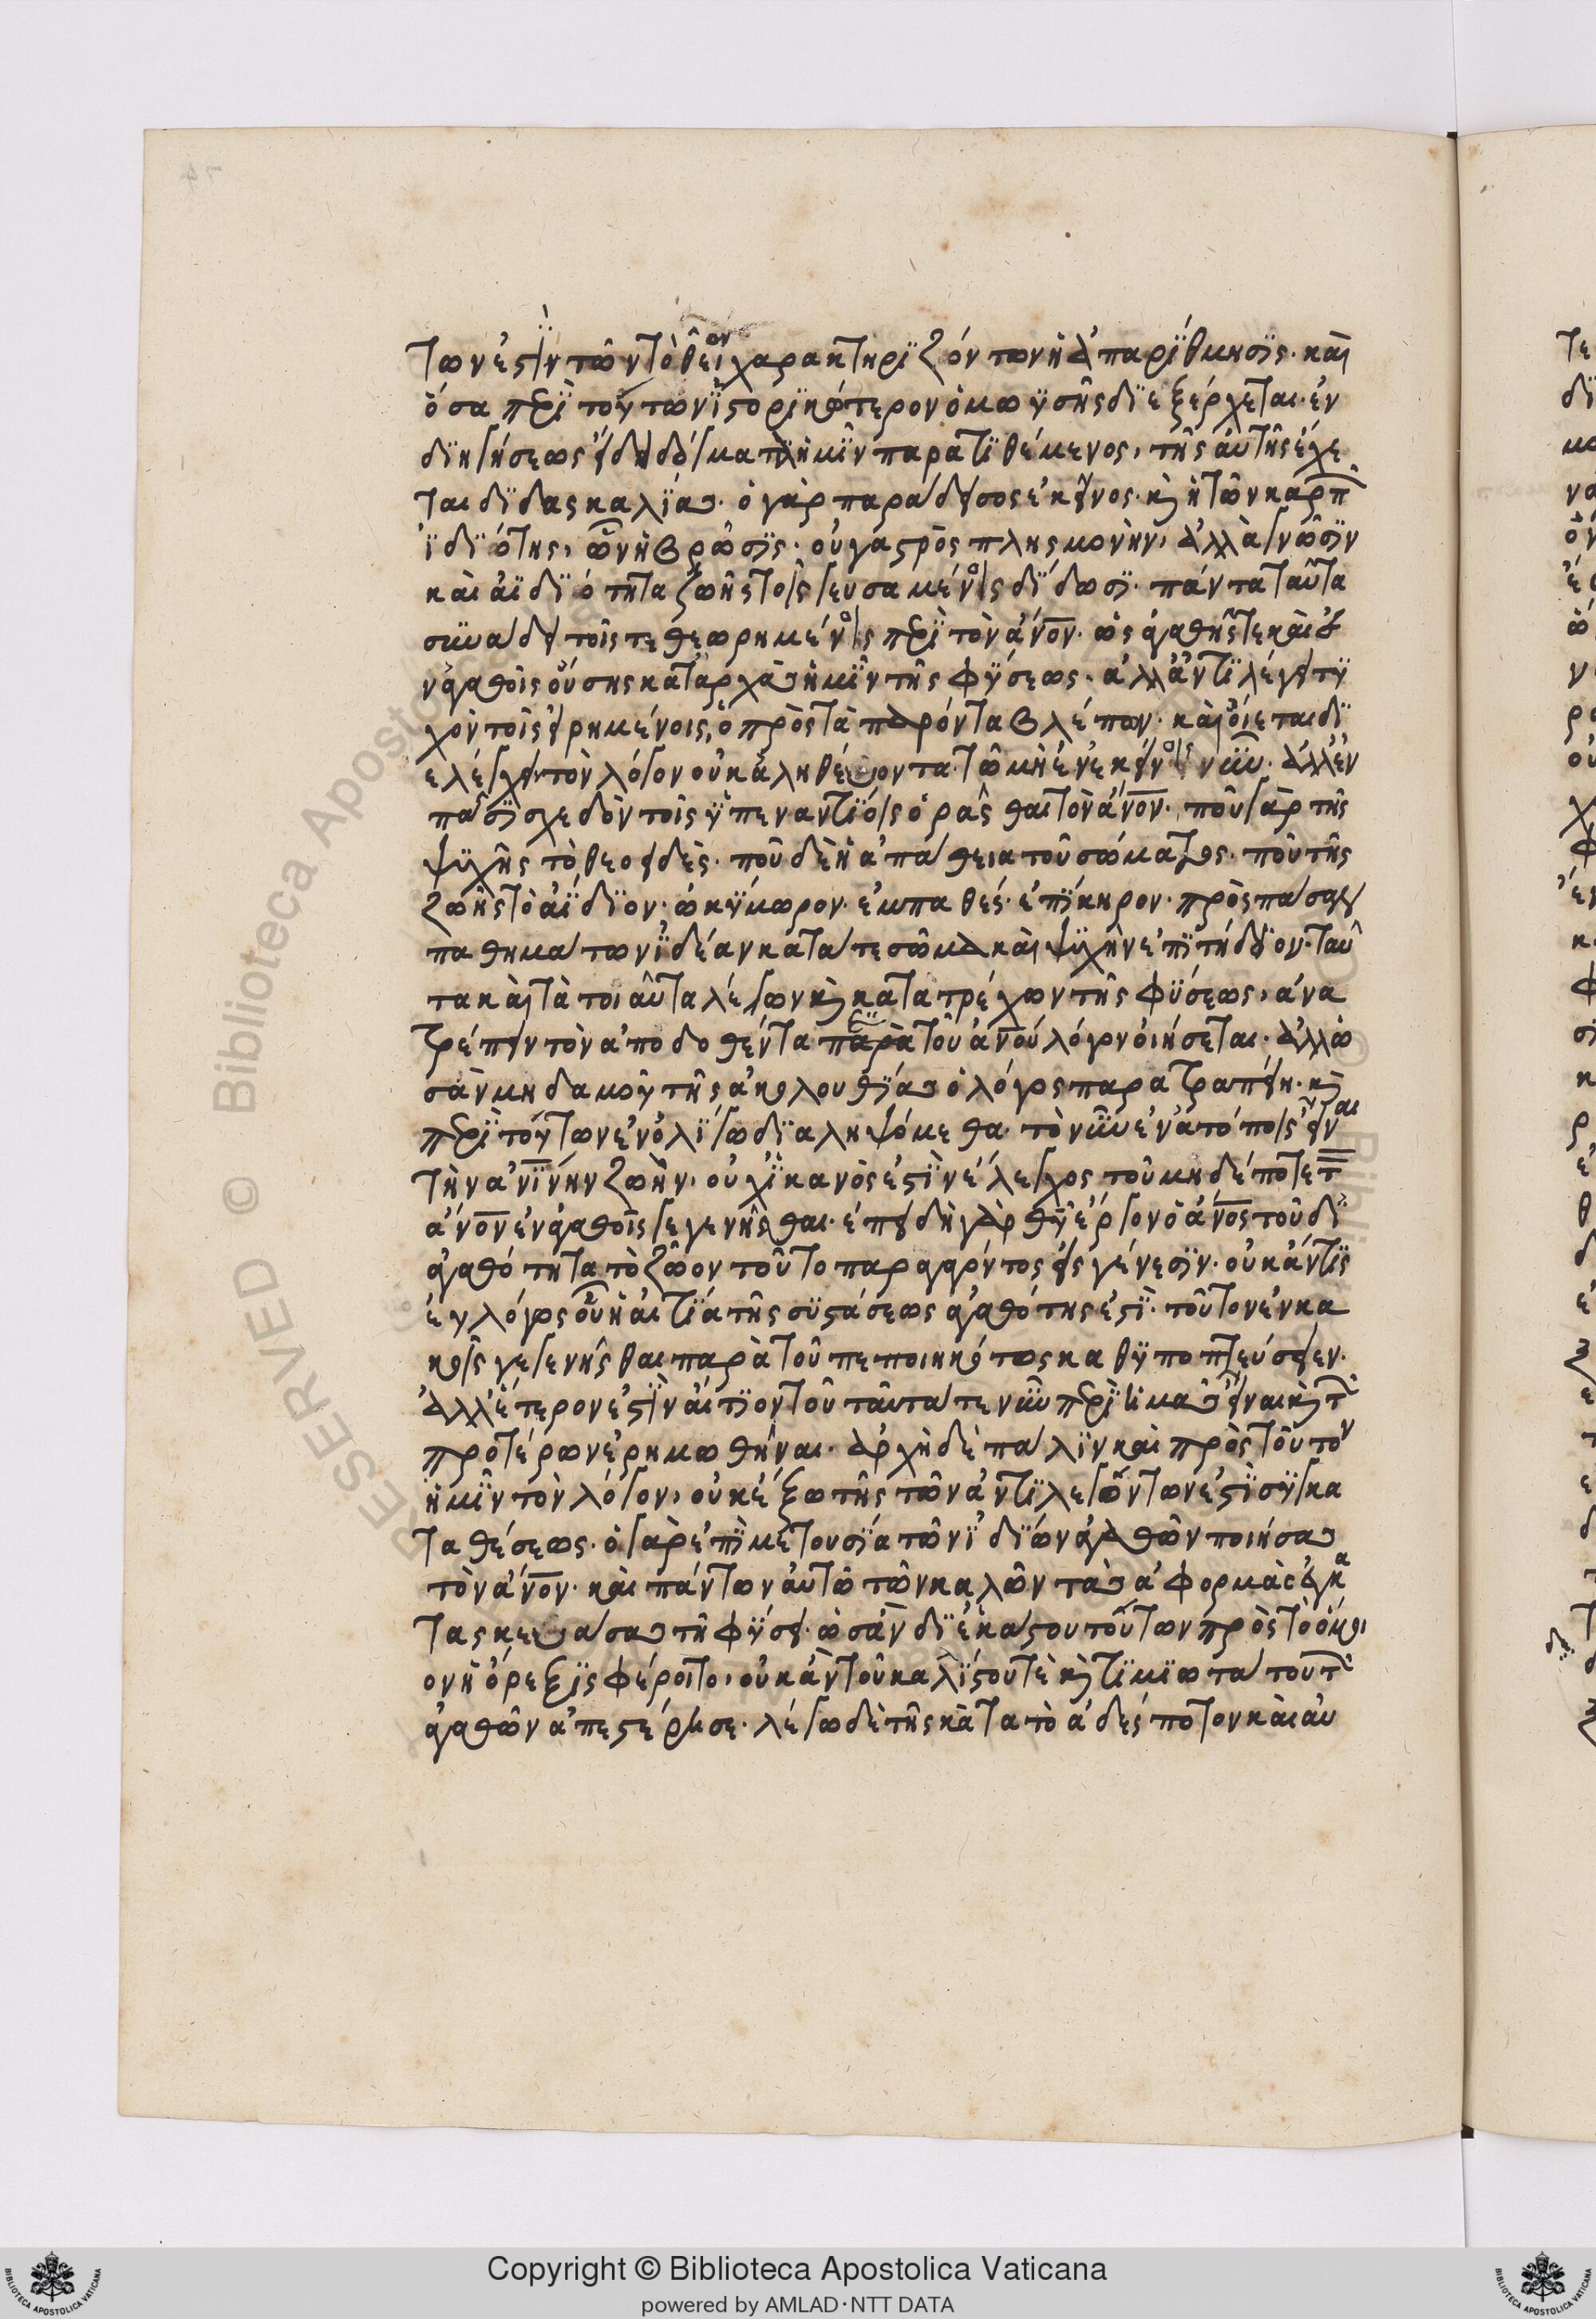 των ἐστὶν τῶν τὸ θεῖον χαρακτηριζόντων ἡ ἀπαρίθμησις. καὶ
ὅσα περὶ τούτων ἱστορικώτερον ὁ μωϋσῆς διεξέρχεται. ἐν
διηγήσεως εἴδει δόγματα ἡμῖν παρατιθέμενος, τῆς αὐτῆς ἔχε
ται διδασκαλίας. ὁ γὰρ παράδεισος ἐκεῖνος. κ ἡ τῶν καρπ
ἰδιότης, ὧν ἡ βρῶσις. οὐ γαστρὸς πλησμονὴν, ἀλλὰ γνῶσιν
καὶ ἀϊδιότητα ζωῆς τοῖς γευσαμένοις δίδωσι. πάντα ταῦτα
συνάδει τοῖς τεθεωρημένοις περὶ τὸν ἄνον. ὡς ἀγαθῆς τε καὶ ἐ
ν ἀγαθοῖς οὔσης κατ ἀρχὰς ἡμῖν τῆς φύσεως. ἀλλ ἀντιλέγει τυ
χὸν τοῖς εἰρημένοις, ὁ πρὸς τὰ παρόντα βλέπων. καὶ οἴεται δι
ελέγχειν τὸν λόγον οὐκ ἀληθεύοντα τῶ μὴ ἐν ἐκείνοις νῦν. ἀλλ ἐν
πᾶσι σχεδὸν τοῖς ὑπεναντίοις ὁρᾶσθαι τὸν ἄνον. ποῦ γὰρ τῆς
ψυχῆς τὸ θεοειδὲς. ποῦ δὲ ἡ ἀπάθεια τοῦ σώματος. ποῦ τῆς
ζωῆς τὸ ἀΐδιον. ὠκύμορον. ἐμπαθές. ἐπίκηρον. πρὸς πᾶσαν
παθημάτων ἰδέαν κατά τε σῶμα καὶ ψυχὴν ἐπιτήδειον. ταῦ
τα καὶ τὰ τοιαῦτα λέγων κ κατατρέχων τῆς φύσεως, ἀνα
τρέπειν τὸν ἀποδοθέντα παρὰ τοῦ ἀνοῦ λόγον οἰήσεται. ἀλλ ὡ
σὰν μηδαμοῦ τῆς ἀκολουθίας ὁ λόγος παρατραπείη. κ
περὶ τούτων ἐν ὀλίγω διαληψόμεθα. τὸ νῦν ἐν ἀτόποις εἶναι
τὴν ἀνίνην ζωὴν, οὐχ ἱκανὸς ἐστὶν ἔλεγχος τοῦ μηδέποτε τ
ἄνον ἐν ἀγαθοῖς γεγενῆσθαι. ἐπειδὴ γὰρ θῦ ἔργον ὁ ἄνος τοῦ δι
ἀγαθότητα τὸ ζῶον τοῦτο παραγαγόντος εἰς γένεσιν. οὐκ ἄν τις
εὐλόγως οὗ ἡ αἰτία τῆς συστάσεως ἀγαθότης ἐστὶ. τοῦτον ἐν κα
κοῖς γεγενῆσθαι παρὰ τοῦ πεποιηκότως καθυποπτεύσειεν.
ἀλλ ἕτερον ἐστὶν αἴτιον τοῦ ταῦτά τε νῦν περὶ ἡμᾶς εἶναι κ τ
προτέρων ἐρημωθῆναι. ἀρχὴ δὲ πάλιν καὶ πρὸς τοῦτον
ἡμῖν τὸν λόγον, οὐκ ἔξω τῆς τῶν ἀντιλεγόντων ἐστὶ συγκα
ταθέσεως. ὁ γὰρ ἐπὶ μετουσία τῶν ἰδίων ἀγαθῶν ποιήσας
τὸν ἄνον. καὶ πάντων αὐτῶ τῶν καλῶν τὰς ἀφορμὰς ἐγκα
τασκευάσας τῆ φύσει. ὡσὰν δι ἑκάστου τούτων πρὸς τὸ ὅμοι
ον ἡ ὄρεξις φέροιτο, οὐκ ἂν τοῦ καλίστου τὲ κ τιμιωτάτου τ
ἀγαθῶν ἀπεστέρησε. λέγω δὲ τῆς κατὰ τὸ ἀδέσποτον καὶ αὐ